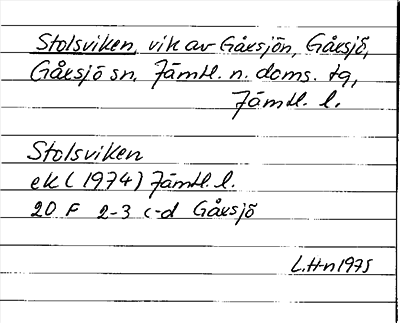 Stolsviken, vik av Gåxsjön, Gåxsjö,
Gåxsjö sn, Jämtl. n. doms. tg,
Jämtl. l.
Stolsviken
ek (1974) Jämtl. l.
20 F 2-3 c-d Gåxsjö
L.H-n 1975